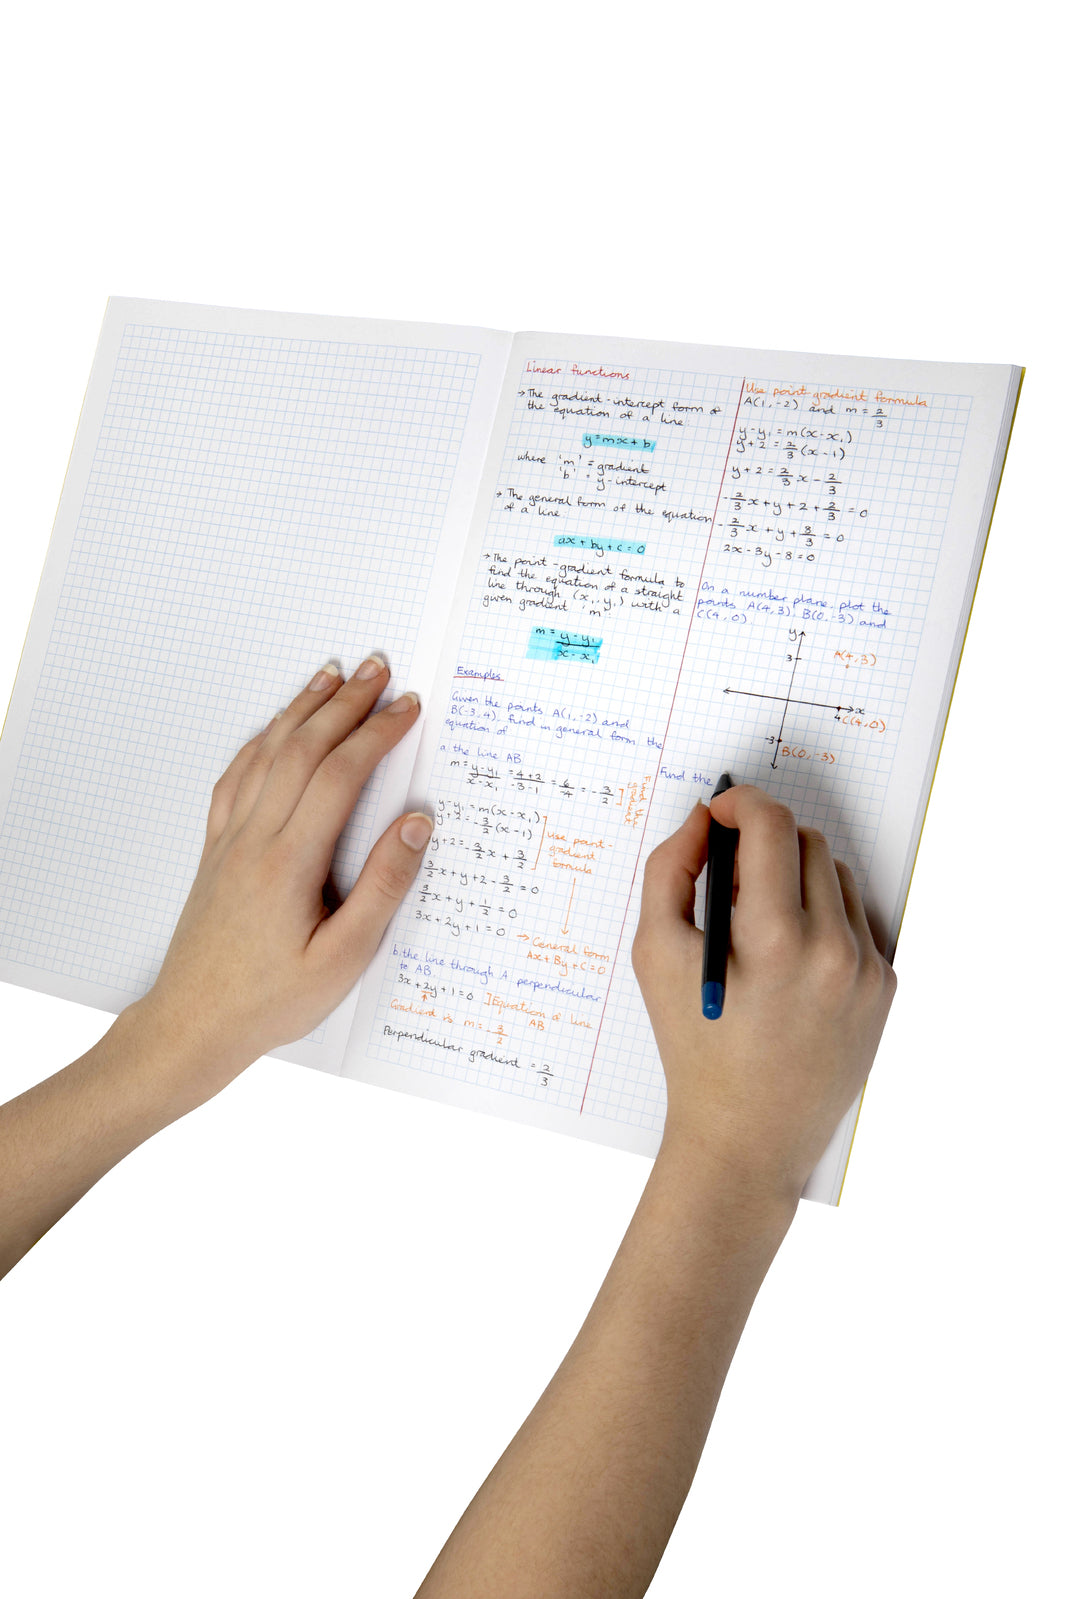 Linear functions
→ The gradient-intercept form of
the equation of a line:
y = mx + b
where 'm' = gradient
'b' = y-intercept
→ The general form of the equation
of a line:
ax + by + c = 0
→ The point-gradient formula to
find the equation of a straight
line through (x₁, y₁) with a
given gradient 'm':
m = y - y₁ / x - x₁
Examples
Given the points A(1, -2) and
B(-3, 4), find in general form the
equation of
a. the line AB
m = y - y₁ / x - x₁ = 4 + 2 / -3 - 1 = 6 / -4 = - 3/2 ] Find the gradient
y - y₁ = m(x - x₁)
y + 2 = - 3/2 (x - 1)
y + 2 = - 3/2 x + 3/2
Use point-
gradient
formula
3/2 x + y + 2 - 3/2 = 0
3/2 x + y + 1/2 = 0
3x + 2y + 1 = 0
→ General form
Ax + By + C = 0
b. the line through A perpendicular
to AB.
3x + 2y + 1 = 0 ] Equation of line
AB
Gradient is m = - 3/2
Perpendicular gradient = 2/3
Use point gradient formula
A(1, -2) and m = 2/3
y - y₁ = m(x - x₁)
y + 2 = 2/3 (x - 1)
y + 2 = 2/3 x - 2/3
- 2/3 x + y + 2 + 2/3 = 0
- 2/3 x + y + 8/3 = 0
2x - 3y - 8 = 0
On a number plane, plot the
points A(4, 3), B(0, -3) and
C(4, 0)
y
3
A(4, 3)
x
4
C(4, 0)
-3
B(0, -3)
Find the